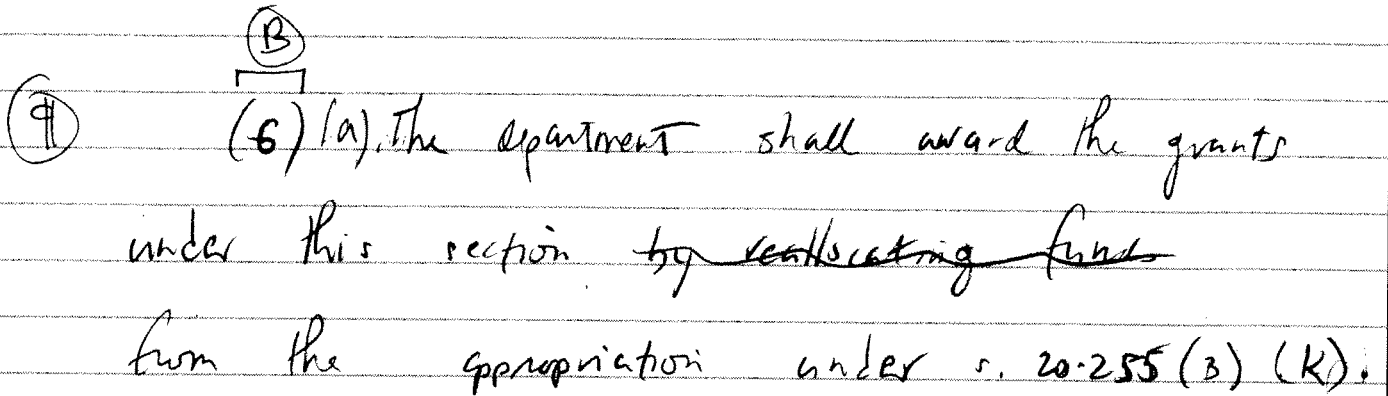 B
¶ (6) (a). The department shall award the grants
under this section by reallocating funds
from the appropriation under s. 20.255 (3) (k).